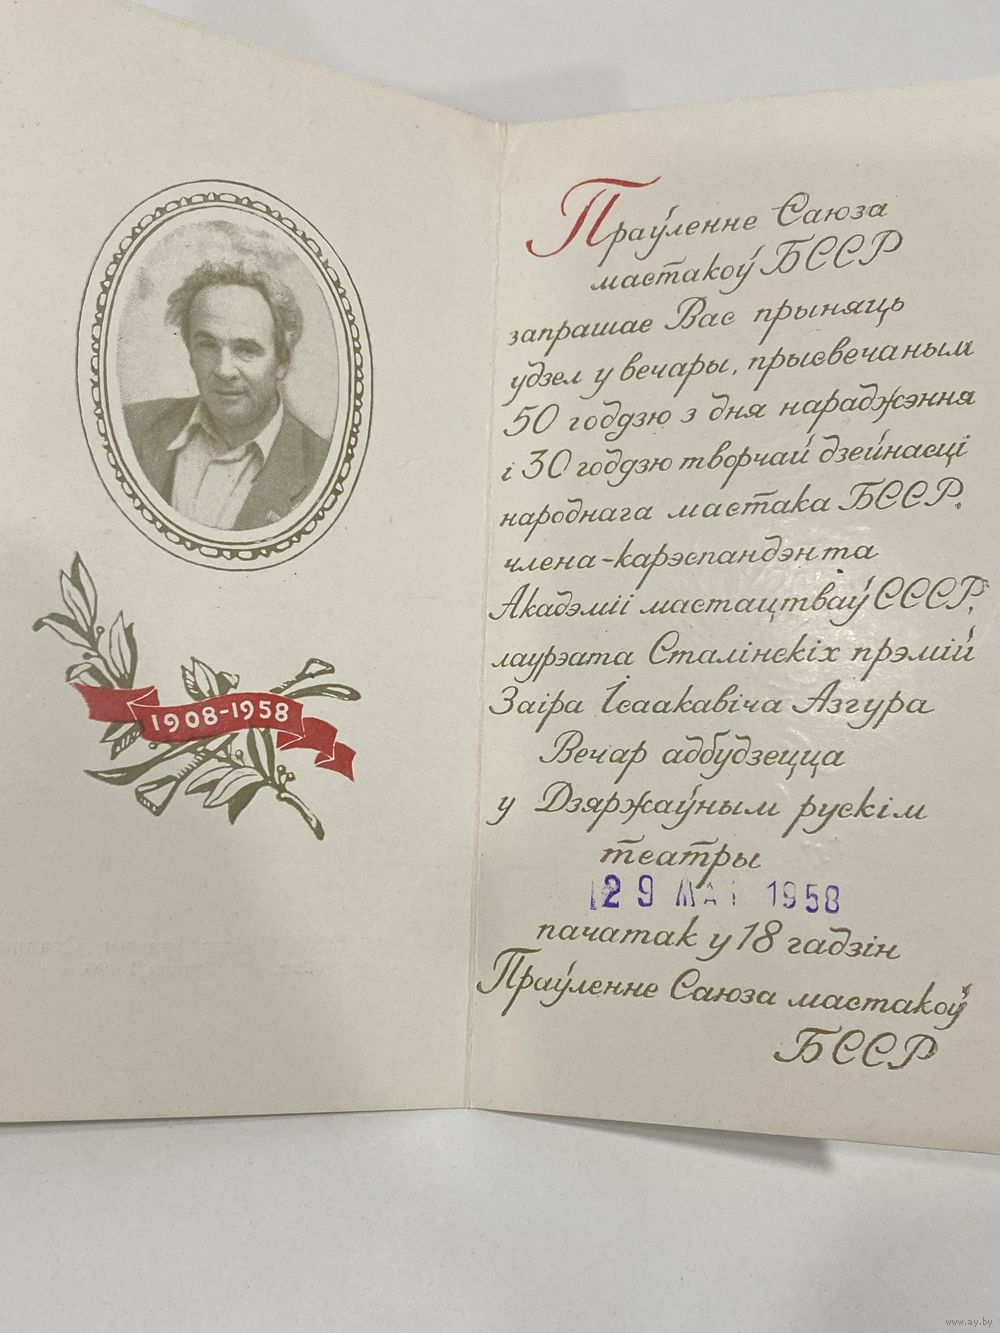 1908-1958
Праўленне Саюза
мастакоў БССР
запрашае Вас прыняць
удзел у вечары, прысвечаным
50 годдзю з дня нараджэння
і 30 годдзю творчай дзейнасці
народнага мастака БССР,
члена-карэспандэнта
Акадэміі мастацтваў СССР,
лаурэата Сталінскіх прэмій
Заіра Ісаакавіча Азгура
Вечар адбудзецца
у Дзяржаўным рускім
театры
29 МАЯ 1958
пачатак у 18 гадзін
Праўленне Саюза мастакоў
БССР
www.ay.by